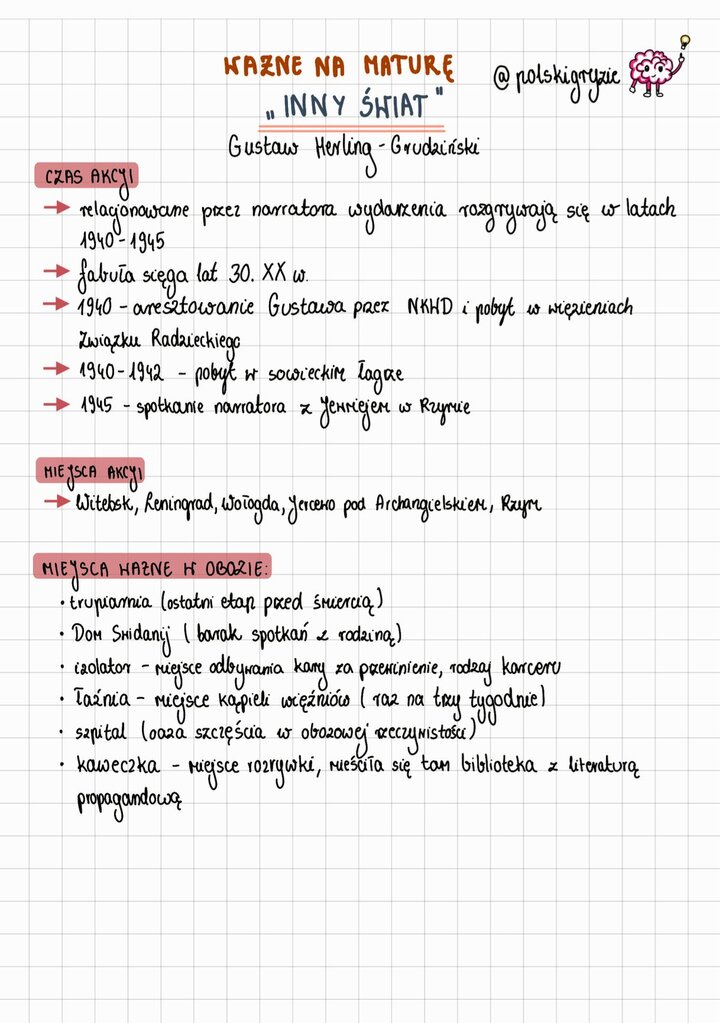 WAŻNE NA MATURĘ
@polskigryzie
„INNY ŚWIAT"
Gustaw Herling-Grudziński
CZAS AKCJI
→ relacjonowane przez narratora wydarzenia rozgrywają się w latach
1940-1945
→ fabuła sięga lat 30. XX w.
→ 1940 - aresztowanie Gustawa przez NKWD i pobyt w więzieniach
Związku Radzieckiego
→ 1940-1942 - pobyt w sowieckim łagrze
→ 1945 - spotkanie narratora z Jewriejem w Rzymie
MIEJSCA AKCJI
→ Witebsk, Leningrad, Wołogda, Jercewo pod Archangielskiem, Rzym
MIEJSCA WAŻNE W OBOZIE:
• trupiarnia (ostatni etap przed śmiercią)
• Dom Swidanij (barak spotkań z rodziną)
• izolator - miejsce odbywania kary za przewinienie, rodzaj karceru
• łaźnia - miejsce kąpieli więźniów (raz na trzy tygodnie)
• szpital (oaza szczęścia w obozowej rzeczywistości)
• kaweczka - miejsce rozrywki, mieściła się tam biblioteka z literaturą
propagandową